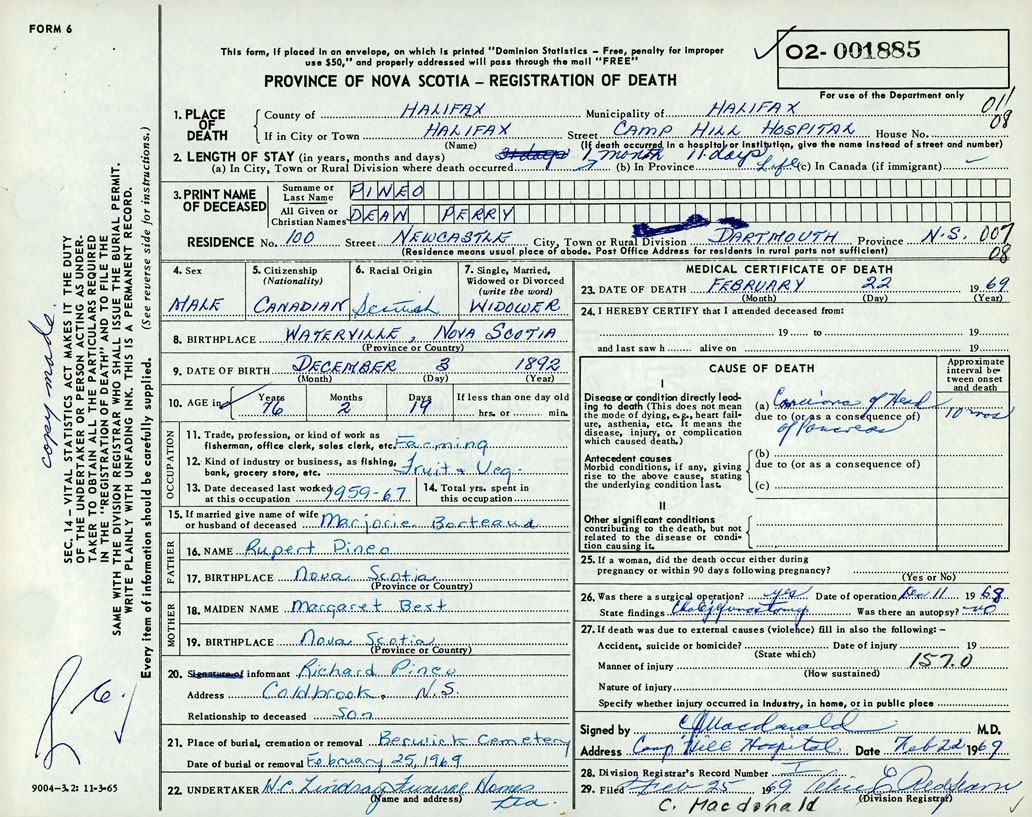 FORM 6
This form, if placed in an envelope, on which is printed "Dominion Statistics – Free, penalty for improper
use $50," and properly addressed will pass through the mail "FREE"
O2- 001885
For use of the Department only
PROVINCE OF NOVA SCOTIA – REGISTRATION OF DEATH
011
08
1. PLACE OF DEATH
County of HALIFAX Municipality of HALIFAX
If in City or Town HALIFAX Street CAMP HILL HOSPITAL House No.
(Name) (If death occurred in a hospital or institution, give the name instead of street and number)
2. LENGTH OF STAY (in years, months and days) 1 month 11 days
(a) In City, Town or Rural Division where death occurred (b) In Province Life (c) In Canada (if immigrant)
3. PRINT NAME OF DECEASED
Surname or Last Name PINEO
All Given or Christian Names DEAN PERRY
RESIDENCE No. 100 Street NEWCASTLE City, Town or Rural Division DARTMOUTH Province N.S. 007
08
(Residence means usual place of abode. Post Office Address for residents in rural parts not sufficient)
4. Sex
MALE
5. Citizenship
(Nationality)
CANADIAN
6. Racial Origin
Scottish
7. Single, Married,
Widowed or Divorced
(write the word)
WIDOWER
8. BIRTHPLACE WATERVILLE, NOVA SCOTIA
(Province or Country)
9. DATE OF BIRTH DECEMBER 3 1892
(Month) (Day) (Year)
10. AGE in Years Months Days If less than one day old
76 2 19 hrs. or min.
OCCUPATION
11. Trade, profession, or kind of work as
fisherman, office clerk, sales clerk, etc. Farming
12. Kind of industry or business, as fishing,
bank, grocery store, etc. Fruit & Veg.
13. Date deceased last worked
at this occupation 1959-67
14. Total yrs. spent in
this occupation
15. If married give name of wife
or husband of deceased Marjorie Borteaud
FATHER
16. NAME Rupert Pineo
17. BIRTHPLACE Nova Scotia
(Province or Country)
MOTHER
18. MAIDEN NAME Margaret Best
19. BIRTHPLACE Nova Scotia
(Province or Country)
20. Signature of informant Richard Pineo
Address Coldbrook, N.S.
Relationship to deceased Son
21. Place of burial, cremation or removal Berwick Cemetery
Date of burial or removal February 25, 1969
22. UNDERTAKER H.C. Lindsay Funeral Homes
(Name and address) Ltd.
MEDICAL CERTIFICATE OF DEATH
23. DATE OF DEATH FEBRUARY 22 1969
(Month) (Day) (Year)
24. I HEREBY CERTIFY that I attended deceased from:
19 to 19
and last saw h alive on 19
CAUSE OF DEATH
Approximate
interval be-
tween onset
and death
I
Disease or condition directly lead-
ing to death (This does not mean
the mode of dying, e.g., heart fail-
ure, asthenia, etc. It means the
disease, injury, or complication
which caused death.)
(a) Carcinoma of Head
due to (or as a consequence of) 10 mos
of Pancreas
Antecedent causes
Morbid conditions, if any, giving
rise to the above cause, stating
the underlying condition last.
(b)
due to (or as a consequence of)
(c)
II
Other significant conditions
contributing to the death, but not
related to the disease or condi-
tion causing it.
25. If a woman, did the death occur either during
pregnancy or within 90 days following pregnancy?
(Yes or No)
26. Was there a surgical operation? yes Date of operation Dec 11 1968
State findings Was there an autopsy? no
27. If death was due to external causes (violence) fill in also the following: –
Accident, suicide or homicide? Date of injury 19
(State which)
Manner of injury 157.0
(How sustained)
Nature of injury
Specify whether injury occurred in industry, in home, or in public place
Signed by C Macdonald M.D.
Address Camp Hill Hospital Date Feb 22 1969
28. Division Registrar's Record Number I
29. Filed Feb 25 1969
(Division Registrar)
C. Macdonald
SEC. 14 – VITAL STATISTICS ACT MAKES IT THE DUTY
OF THE UNDERTAKER OR PERSON ACTING AS UNDER-
TAKER TO OBTAIN ALL THE PARTICULARS REQUIRED
IN THE "REGISTRATION OF DEATH" AND TO FILE THE
SAME WITH THE DIVISION REGISTRAR WHO SHALL ISSUE THE BURIAL PERMIT.
WRITE PLAINLY WITH UNFADING INK. THIS IS A PERMANENT RECORD.
Every item of information should be carefully supplied. (See reverse side for instructions.)
copy made.
9004-3.2: 11-3-65